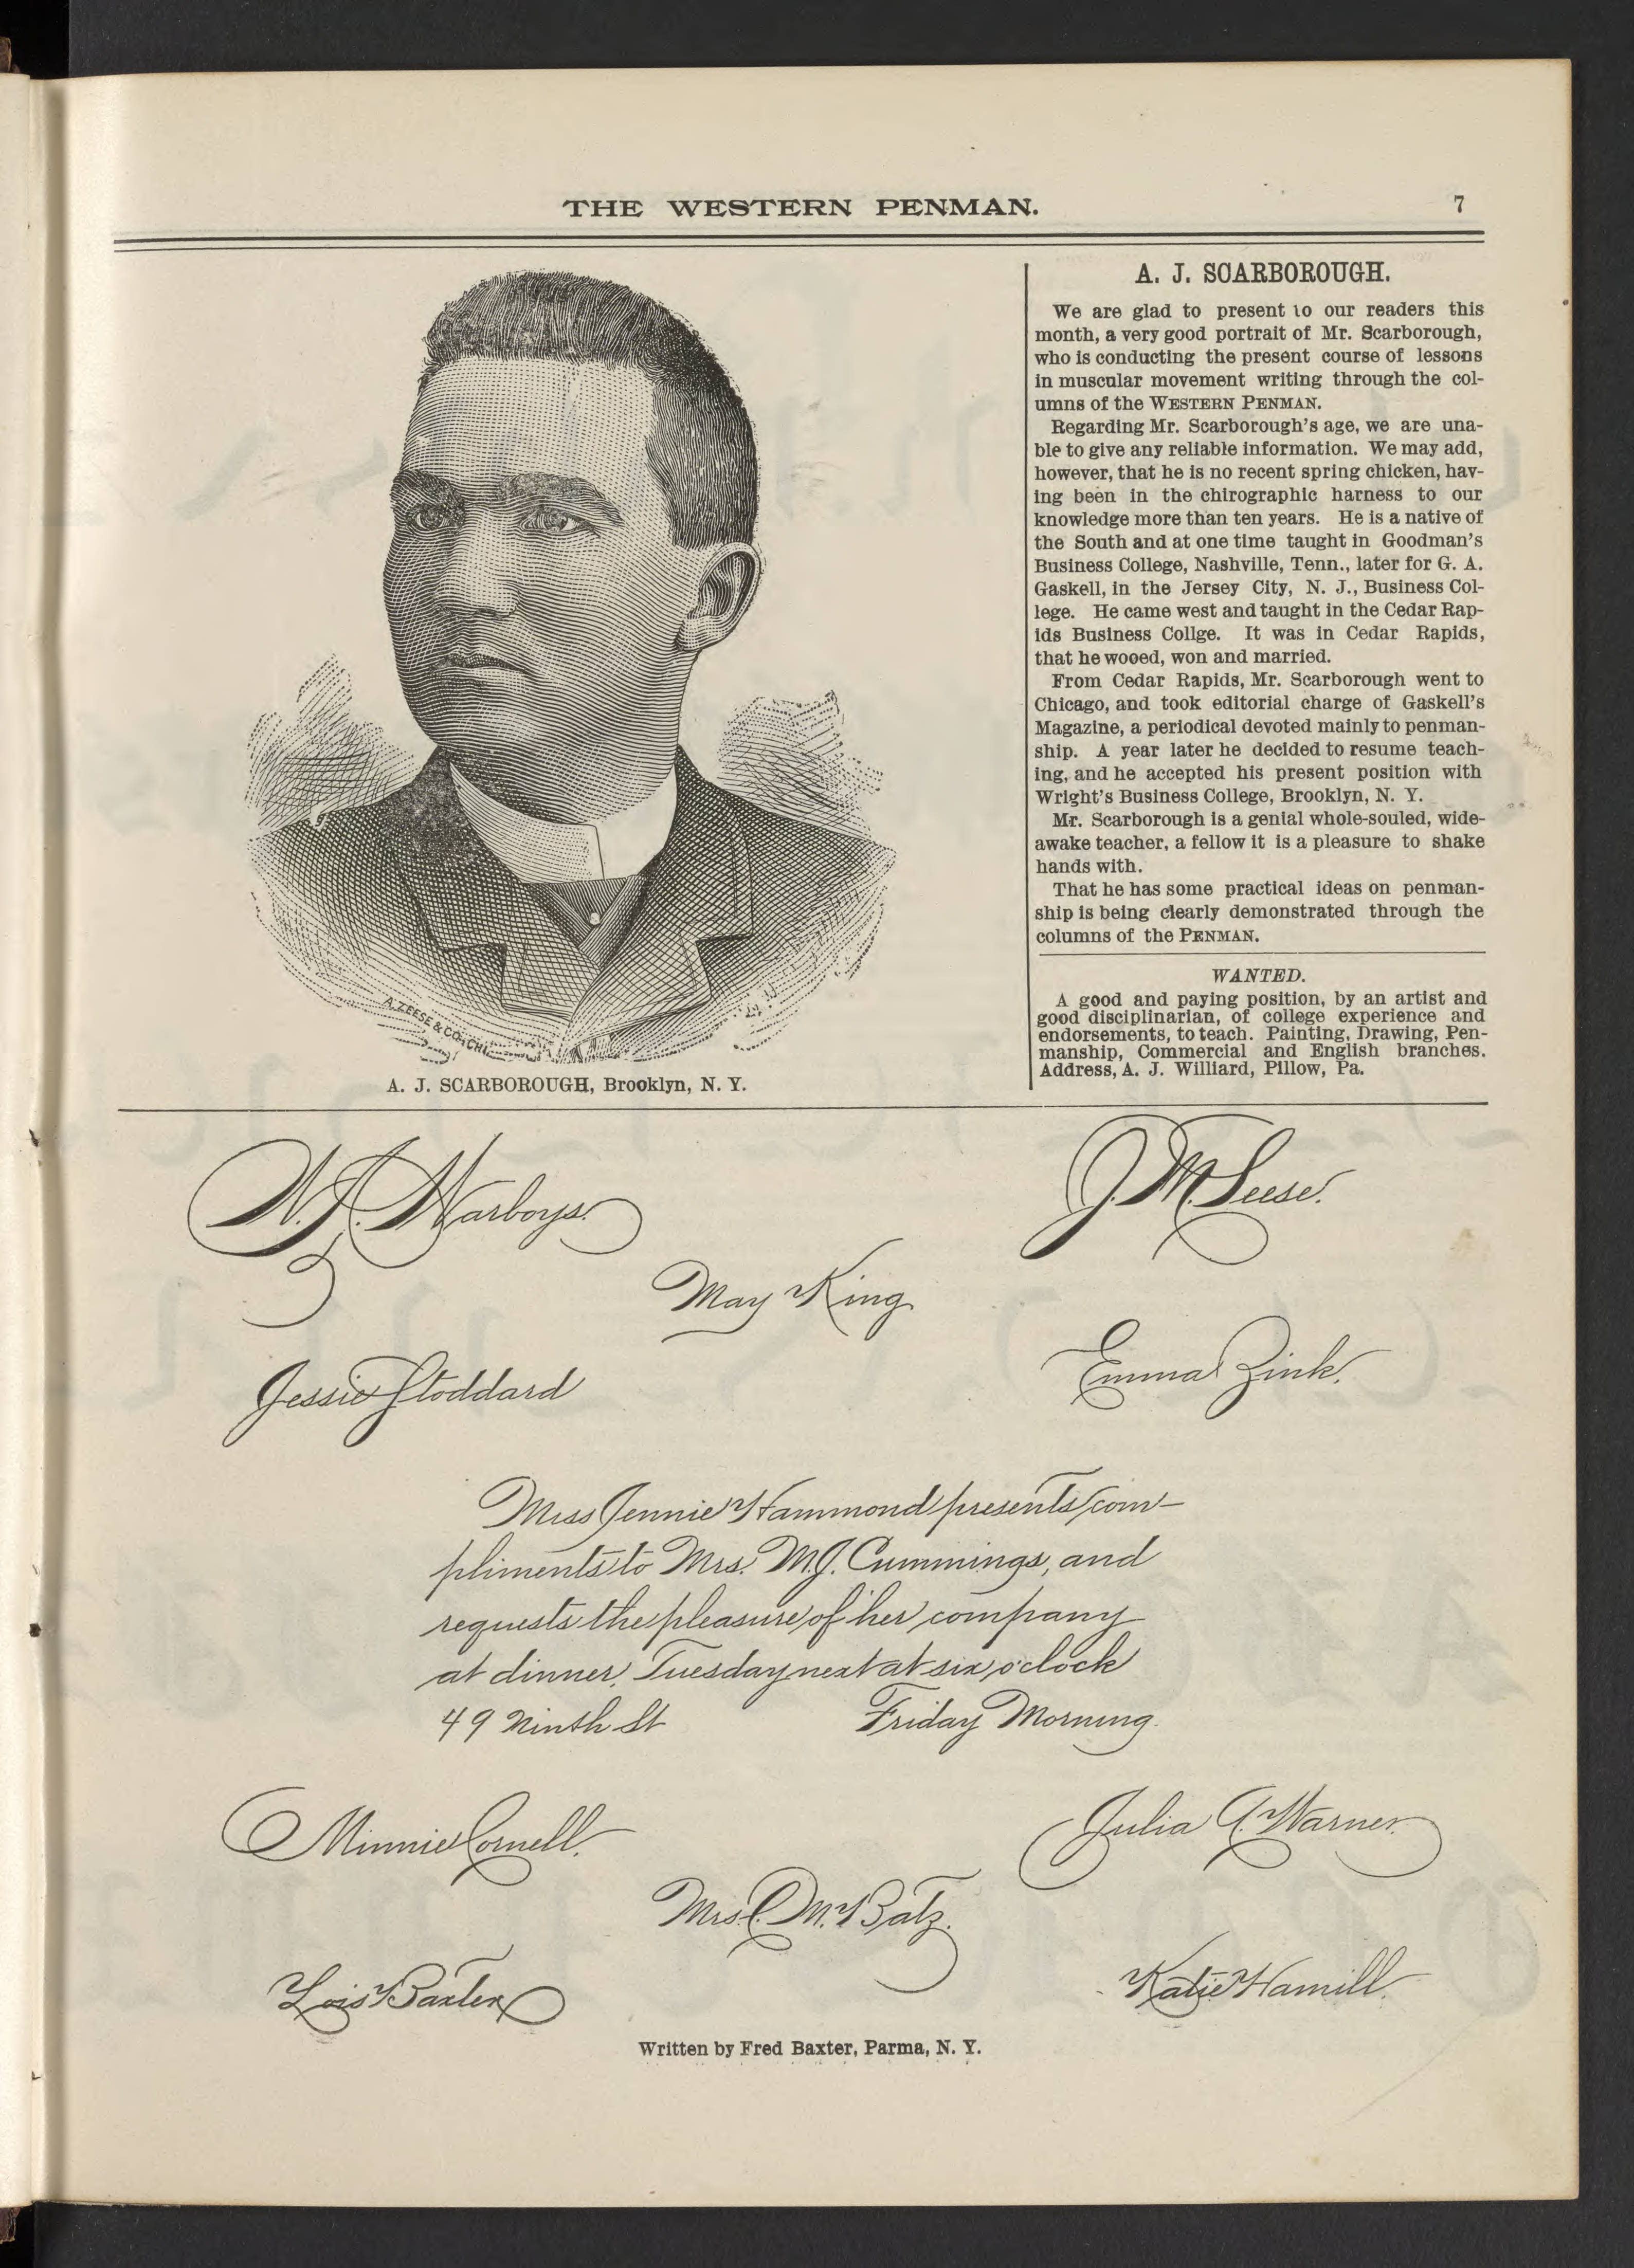 THE WESTERN PENMAN.
7
A. ZEESE & CO. CHI.
A. J. SCARBOROUGH, Brooklyn, N. Y.
A. J. SCARBOROUGH.
We are glad to present to our readers this
month, a very good portrait of Mr. Scarborough,
who is conducting the present course of lessons
in muscular movement writing through the col-
umns of the WESTERN PENMAN.
Regarding Mr. Scarborough's age, we are una-
ble to give any reliable information. We may add,
however, that he is no recent spring chicken, hav-
ing been in the chirographic harness to our
knowledge more than ten years. He is a native of
the South and at one time taught in Goodman's
Business College, Nashville, Tenn., later for G. A.
Gaskell, in the Jersey City, N. J., Business Col-
lege. He came west and taught in the Cedar Rap-
ids Business Collge. It was in Cedar Rapids,
that he wooed, won and married.
From Cedar Rapids, Mr. Scarborough went to
Chicago, and took editorial charge of Gaskell's
Magazine, a periodical devoted mainly to penman-
ship. A year later he decided to resume teach-
ing, and he accepted his present position with
Wright's Business College, Brooklyn, N. Y.
Mr. Scarborough is a genial whole-souled, wide-
awake teacher, a fellow it is a pleasure to shake
hands with.
That he has some practical ideas on penman-
ship is being clearly demonstrated through the
columns of the PENMAN.
WANTED.
A good and paying position, by an artist and
good disciplinarian, of college experience and
endorsements, to teach. Painting, Drawing, Pen-
manship, Commercial and English branches.
Address, A. J. Williard, Pillow, Pa.
Warboys.
J. M. Seese.
May King
Jessie Stoddard
Emma Zink.
Miss Jennie Hammond presents com-
pliments to Mrs. M. J. Cummings, and
requests the pleasure of her company
at dinner, Tuesday next at six o'clock
49 Ninth St
Friday Morning.
Minnie Cornell.
Julia A. Warner.
Mrs. C. M. Batz.
Lois Baxter
Katie Hamill.
Written by Fred Baxter, Parma, N. Y.